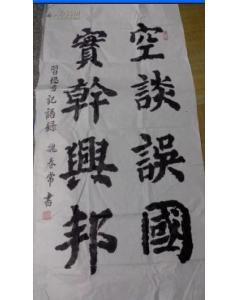 空談誤國
實幹興邦
習總書記語錄 魏春常書